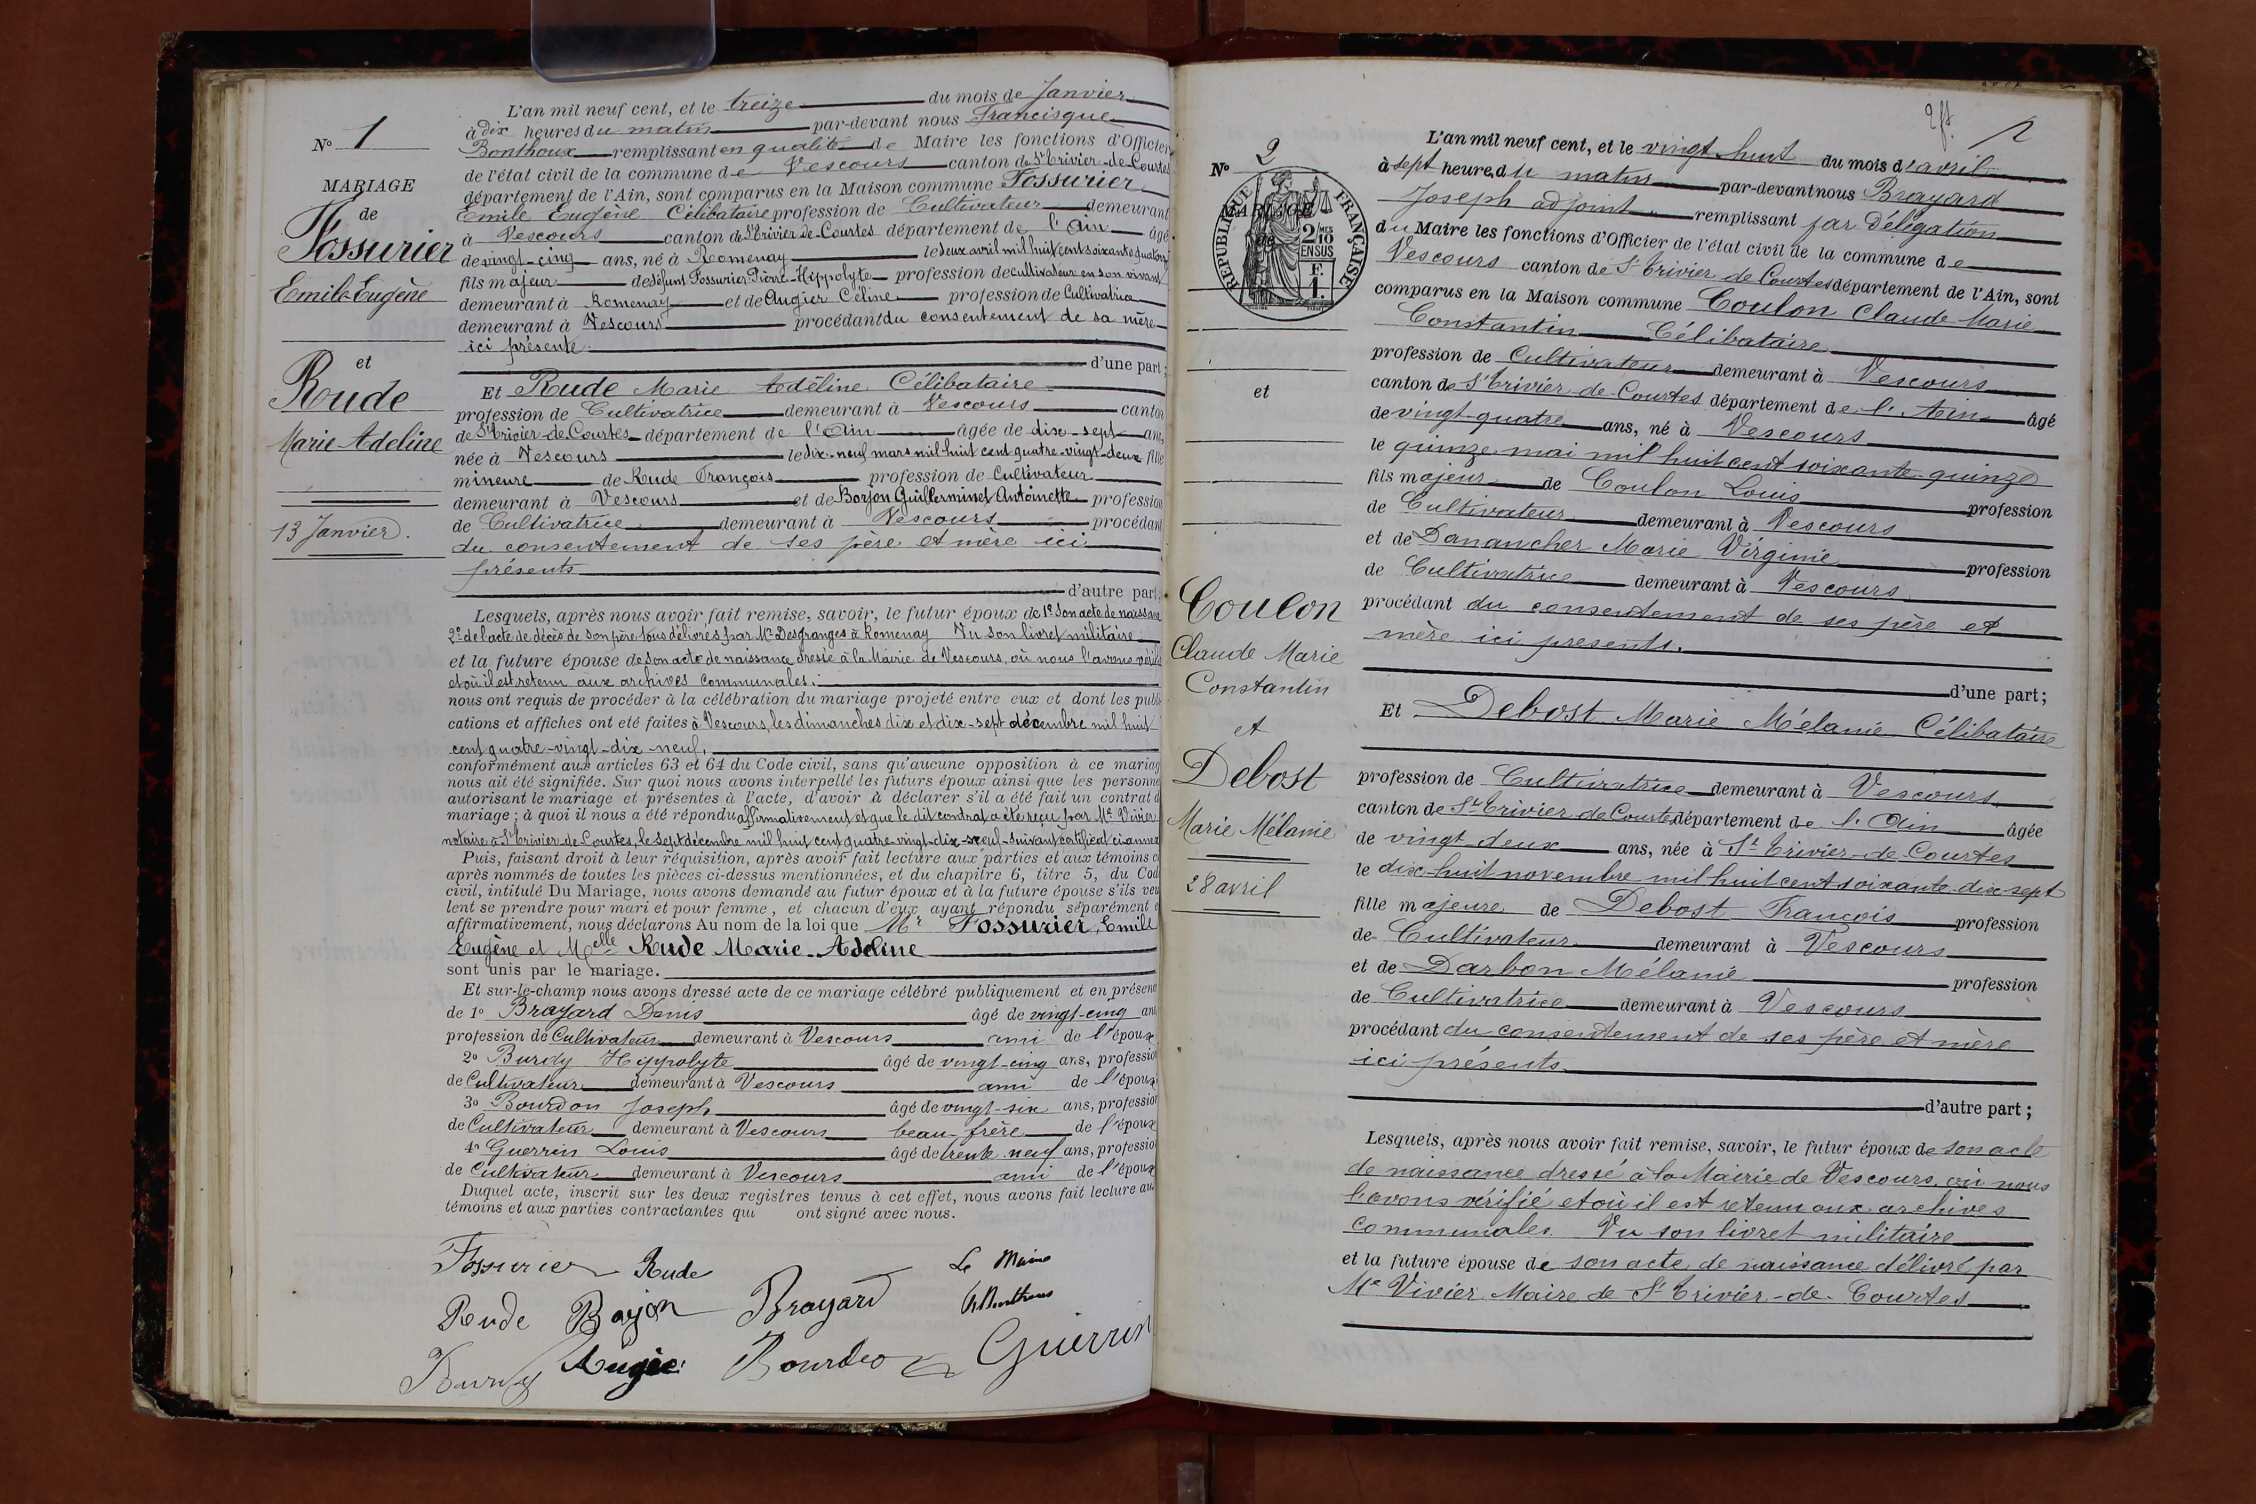 N° 1
MARIAGE
de
Fossurier
Emile Eugène
et
Rude
Marie Adeline
13 Janvier.
L'an mil neuf cent, et le treize du mois de Janvier
à dix heures du matin par-devant nous Francisque
Bonthoux remplissant en qualité de Maire les fonctions d'Officier
de l'état civil de la commune de Vescours canton de St Trivier-de-Courtes
département de l'Ain, sont comparus en la Maison commune Fossurier
Emile Eugène Célibataire profession de Cultivateur demeurant
à Vescours canton de St Trivier-de-Courtes département de l'Ain âgé
de vingt-cinq ans, né à Romenay le deux avril mil huit cent soixante quatorze
fils majeur de défunt Fossurier Pierre-Hippolyte profession de cultivateur en son vivant
demeurant à Romenay et de Augier Céline profession de Cultivatrice
demeurant à Vescours procédant du consentement de sa mère
ici présente.
d'une part;
Et Rude Marie Adéline Célibataire
profession de Cultivatrice demeurant à Vescours canton
de St Trivier-de-Courtes département de l'Ain âgée de dix-sept ans,
née à Vescours le dix-neuf mars mil huit cent quatre-vingt-deux fille
mineure de Rude François profession de Cultivateur
demeurant à Vescours et de Borjon Guillerminet Antoinette profession
de Cultivatrice demeurant à Vescours procédant
du consentement de ses père et mère ici
présents
d'autre part;
Lesquels, après nous avoir fait remise, savoir, le futur époux de 1° Son acte de naissance
2° de l'acte de décès de son père tous délivrés par Mr Desgranges à Romenay Vu son livret militaire
et la future épouse de son acte de naissance dressé à la Mairie de Vescours, où nous l'avons vérifié
et où il est retenu aux archives communales.
nous ont requis de procéder à la célébration du mariage projeté entre eux et dont les publi-
cations et affiches ont eté faites à Vescours, les dimanches dix et dix-sept décembre mil huit
cent quatre-vingt-dix-neuf,
conformément aux articles 63 et 64 du Code civil, sans qu'aucune opposition à ce mariage
nous ait été signifiée. Sur quoi nous avons interpellé les futurs époux ainsi que les personnes
autorisant le mariage et présentes à l'acte, d'avoir à déclarer s'il a été fait un contrat de
mariage; à quoi il nous a été répondu affirmativement et que le dit contrat a été reçu par Me Vivier
notaire à St Trivier-de-Courtes, le sept décembre mil huit cent quatre-vingt-dix-neuf-suivant certificat ci-annexé
Puis, faisant droit à leur réquisition, après avoir fait lecture aux parties et aux témoins ci-
après nommés de toutes les pièces ci-dessus mentionnées, et du chapitre 6, titre 5, du Code
civil, intitulé Du Mariage, nous avons demandé au futur époux et à la future épouse s'ils veu-
lent se prendre pour mari et pour femme, et chacun d'eux ayant répondu séparément et
affirmativement, nous déclarons Au nom de la loi que Mr Fossurier, Emile
Eugène et Melle Rude Marie-Adeline
sont unis par le mariage.
Et sur-le-champ nous avons dressé acte de ce mariage célébré publiquement et en présence
de 1° Brayard Denis âgé de vingt-cinq ans
profession de Cultivateur demeurant à Vescours ami de l'époux
2° Burdy Hyppolyte âgé de vingt-cinq ans, profession
de Cultivateur demeurant à Vescours ami de l'époux
3° Bourdon Joseph âgé de vingt-six ans, profession
de Cultivateur demeurant à Vescours beau-frère de l'époux
4° Guerrin Louis âgé de trente neuf ans, profession
de Cultivateur demeurant à Vescours ami de l'époux
Duquel acte, inscrit sur les deux registres tenus à cet effet, nous avons fait lecture aux
témoins et aux parties contractantes qui ont signé avec nous.
Fossurier Rude Le Maire
Rude Borjon Brayard Bonthoux
Burdy Augier Bourdon Guerrin
2
N° 2
MARIAGE
de
RÉPUBLIQUE FRANÇAISE
2/10 MES
EN SUS
F.
1.
et
Coulon
Claude Marie
Constantin
et
Debost
Marie Mélanie
28 avril
L'an mil neuf cent, et le vingt huit du mois d'avril
à sept heures du matin par-devant nous Brayard
Joseph adjoint remplissant par Délégation
du Maire les fonctions d'Officier de l'état civil de la commune de
Vescours canton de St Trivier de Courtes département de l'Ain, sont
comparus en la Maison commune Coulon Claude Marie
Constantin Célibataire
profession de Cultivateur demeurant à Vescours
canton de St Trivier-de-Courtes département de l'Ain âgé
de vingt-quatre ans, né à Vescours
le quinze mai mil huit cent soixante quinze
fils majeur de Coulon Louis profession
de Cultivateur demeurant à Vescours
et de Danancher Marie Virginie profession
de Cultivatrice demeurant à Vescours
procédant du consentement de ses père et
mère ici presents.
d'une part;
Et Debost Marie Mélanie Célibataire
profession de Cultivatrice demeurant à Vescours
canton de St Trivier de Courtes département de l'Ain âgée
de vingt deux ans, née à St Trivier-de-Courtes
le dix-huit novembre mil huit cent soixante-dix-sept
fille majeure de Debost François profession
de Cultivateur demeurant à Vescours
et de Darbon Mélanie profession
de Cultivatrice demeurant à Vescours
procédant du consentement de ses père et mère
ici présents
d'autre part;
Lesquels, après nous avoir fait remise, savoir, le futur époux de son acte
de naissance dressé à la Mairie de Vescours, où nous
l'avons vérifié et où il est retenu aux archives
communales. Vu son livret militaire
et la future épouse de son acte de naissance délivré par
Mr Vivier Maire de St Trivier-de-Courtes